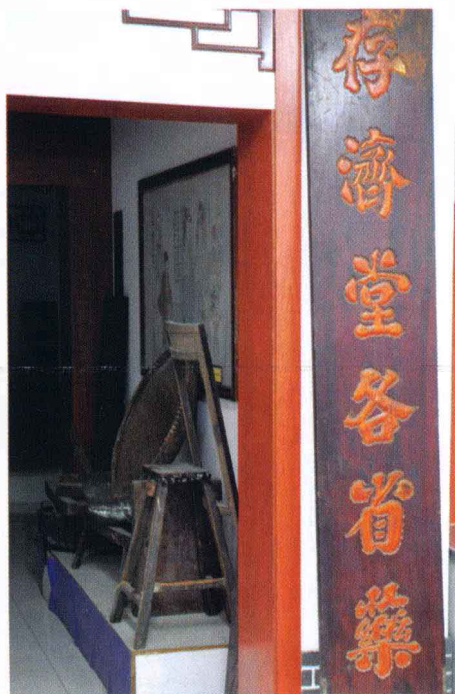 存濟堂各省藥